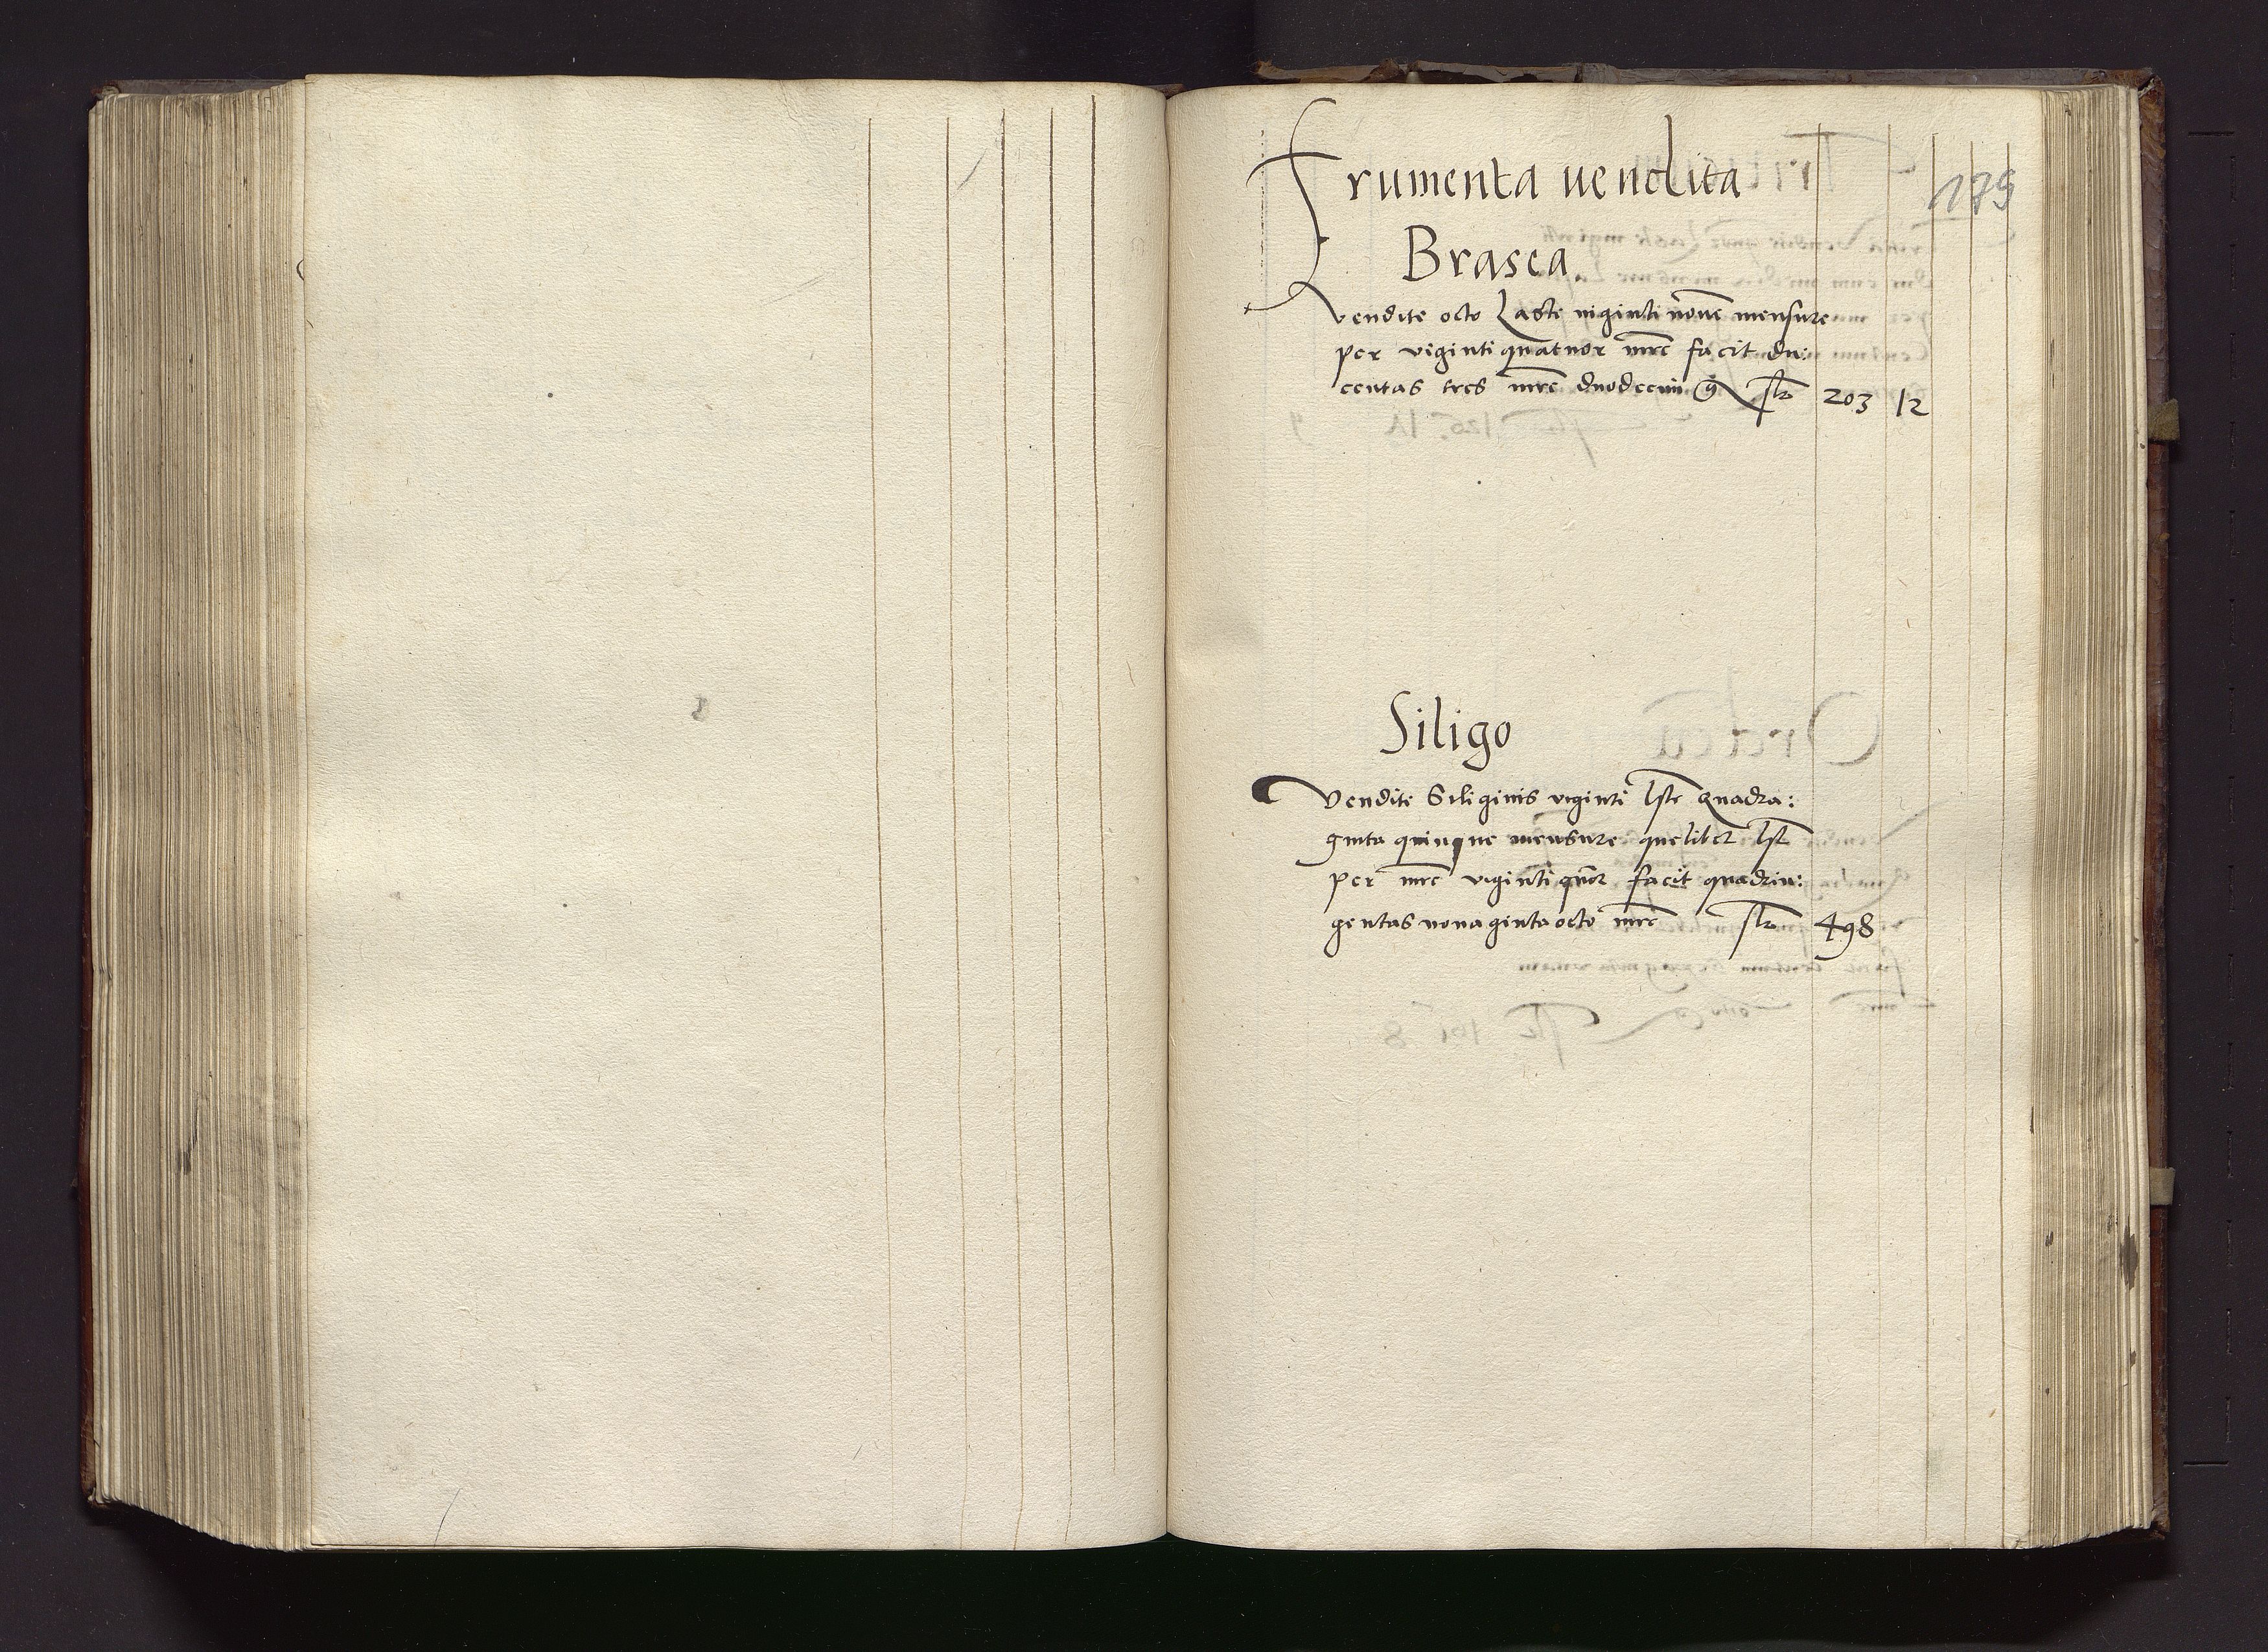 Frumenta uendita
179
Brasea.
vendite octo Laste uiginti nouē mensure
per viginti quatuor mrc facit du:
centas tres mrc duodecim g flr 203 12
Siligo
Vendite Siliginis viginti lste quadra:
ginta quinque mensure quelibet lst
per mrc viginti quor facit quadrin:
gentas nonaginta octo mrc flr 498